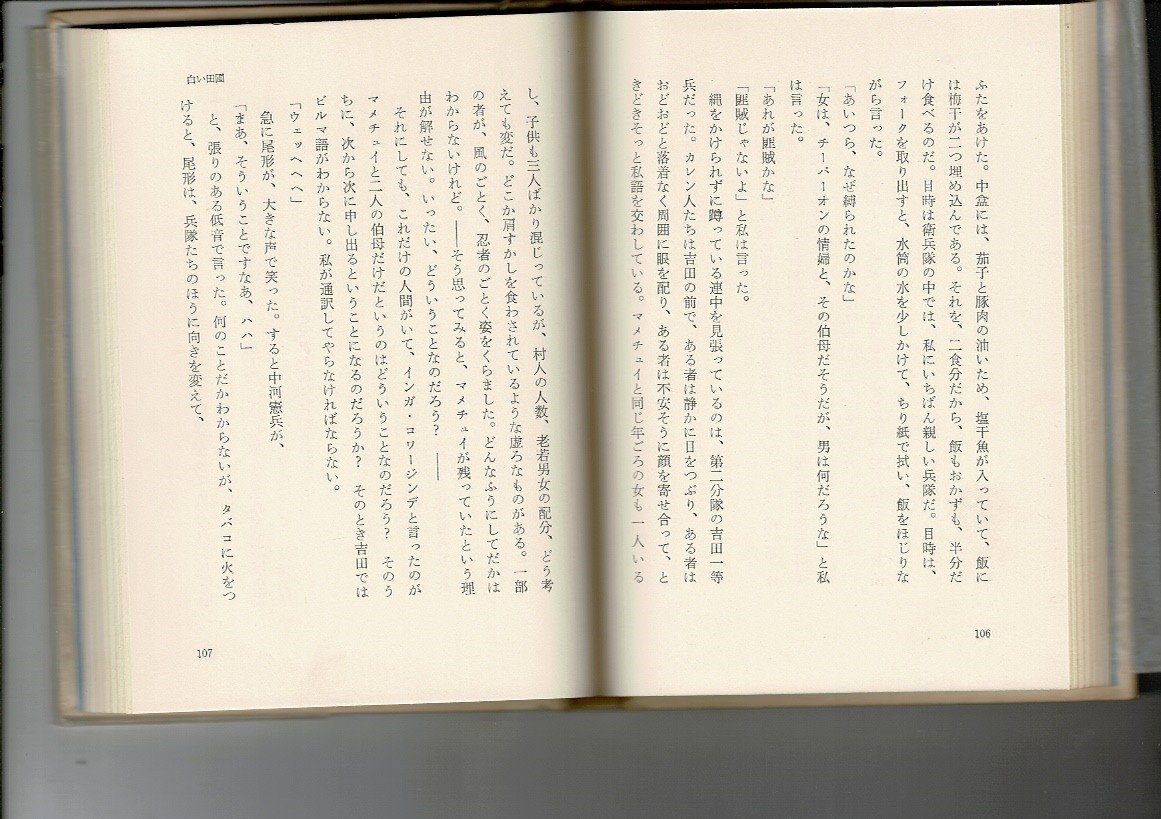 ふたをあけた。中盒には、茄子と豚肉の油いため、塩干魚が入っていて、飯に
は梅干が二つ埋め込んである。それを、二食分だから、飯もおかずも、半分だ
け食べるのだ。目時は衛兵隊の中では、私にいちばん親しい兵隊だ。目時は、
フォークを取り出すと、水筒の水を少しかけて、ちり紙で拭い、飯をほじりな
がら言った。
「あいつら、なぜ縛られたのかな」
「女は、チーパーオンの情婦と、その伯母だそうだが、男は何だろうな」と私
は言った。
「あれが匪賊かな」
「匪賊じゃないよ」と私は言った。
縄をかけられずに蹲っている連中を見張っているのは、第二分隊の吉田一等
兵だった。カレン人たちは吉田の前で、ある者は静かに目をつぶり、ある者は
おどおどと落着なく周囲に眼を配り、ある者は不安そうに顔を寄せ合って、と
きどきそっと私語を交わしている。マメチュイと同じ年ごろの女も一人いる
106
し、子供も三人ばかり混じっているが、村人の人数、老若男女の配分、どう考
えても変だ。どこか肩すかしを食わされているような虚ろなものがある。一部
の者が、風のごとく、忍者のごとく姿をくらました。どんなふうにしてだかは
わからないけれど。――そう思ってみると、マメチュイが残っていたという理
由が解せない。いったい、どういうことなのだろう？　――
それにしても、これだけの人間がいて、インガ・コワージンデと言ったのが
マメチュイと二人の伯母だけだというのはどういうことなのだろう？　そのう
ちに、次から次に申し出るということになるのだろうか？　そのとき吉田では
ビルマ語がわからない。私が通訳してやらなければならない。
「ウェッヘヘヘ」
急に尾形が、大きな声で笑った。すると中河憲兵が、
「まあ、そういうことですなあ、ハハ」
と、張りのある低音で言った。何のことだかわからないが、タバコに火をつ
けると、尾形は、兵隊たちのほうに向きを変えて、
白い田園
107